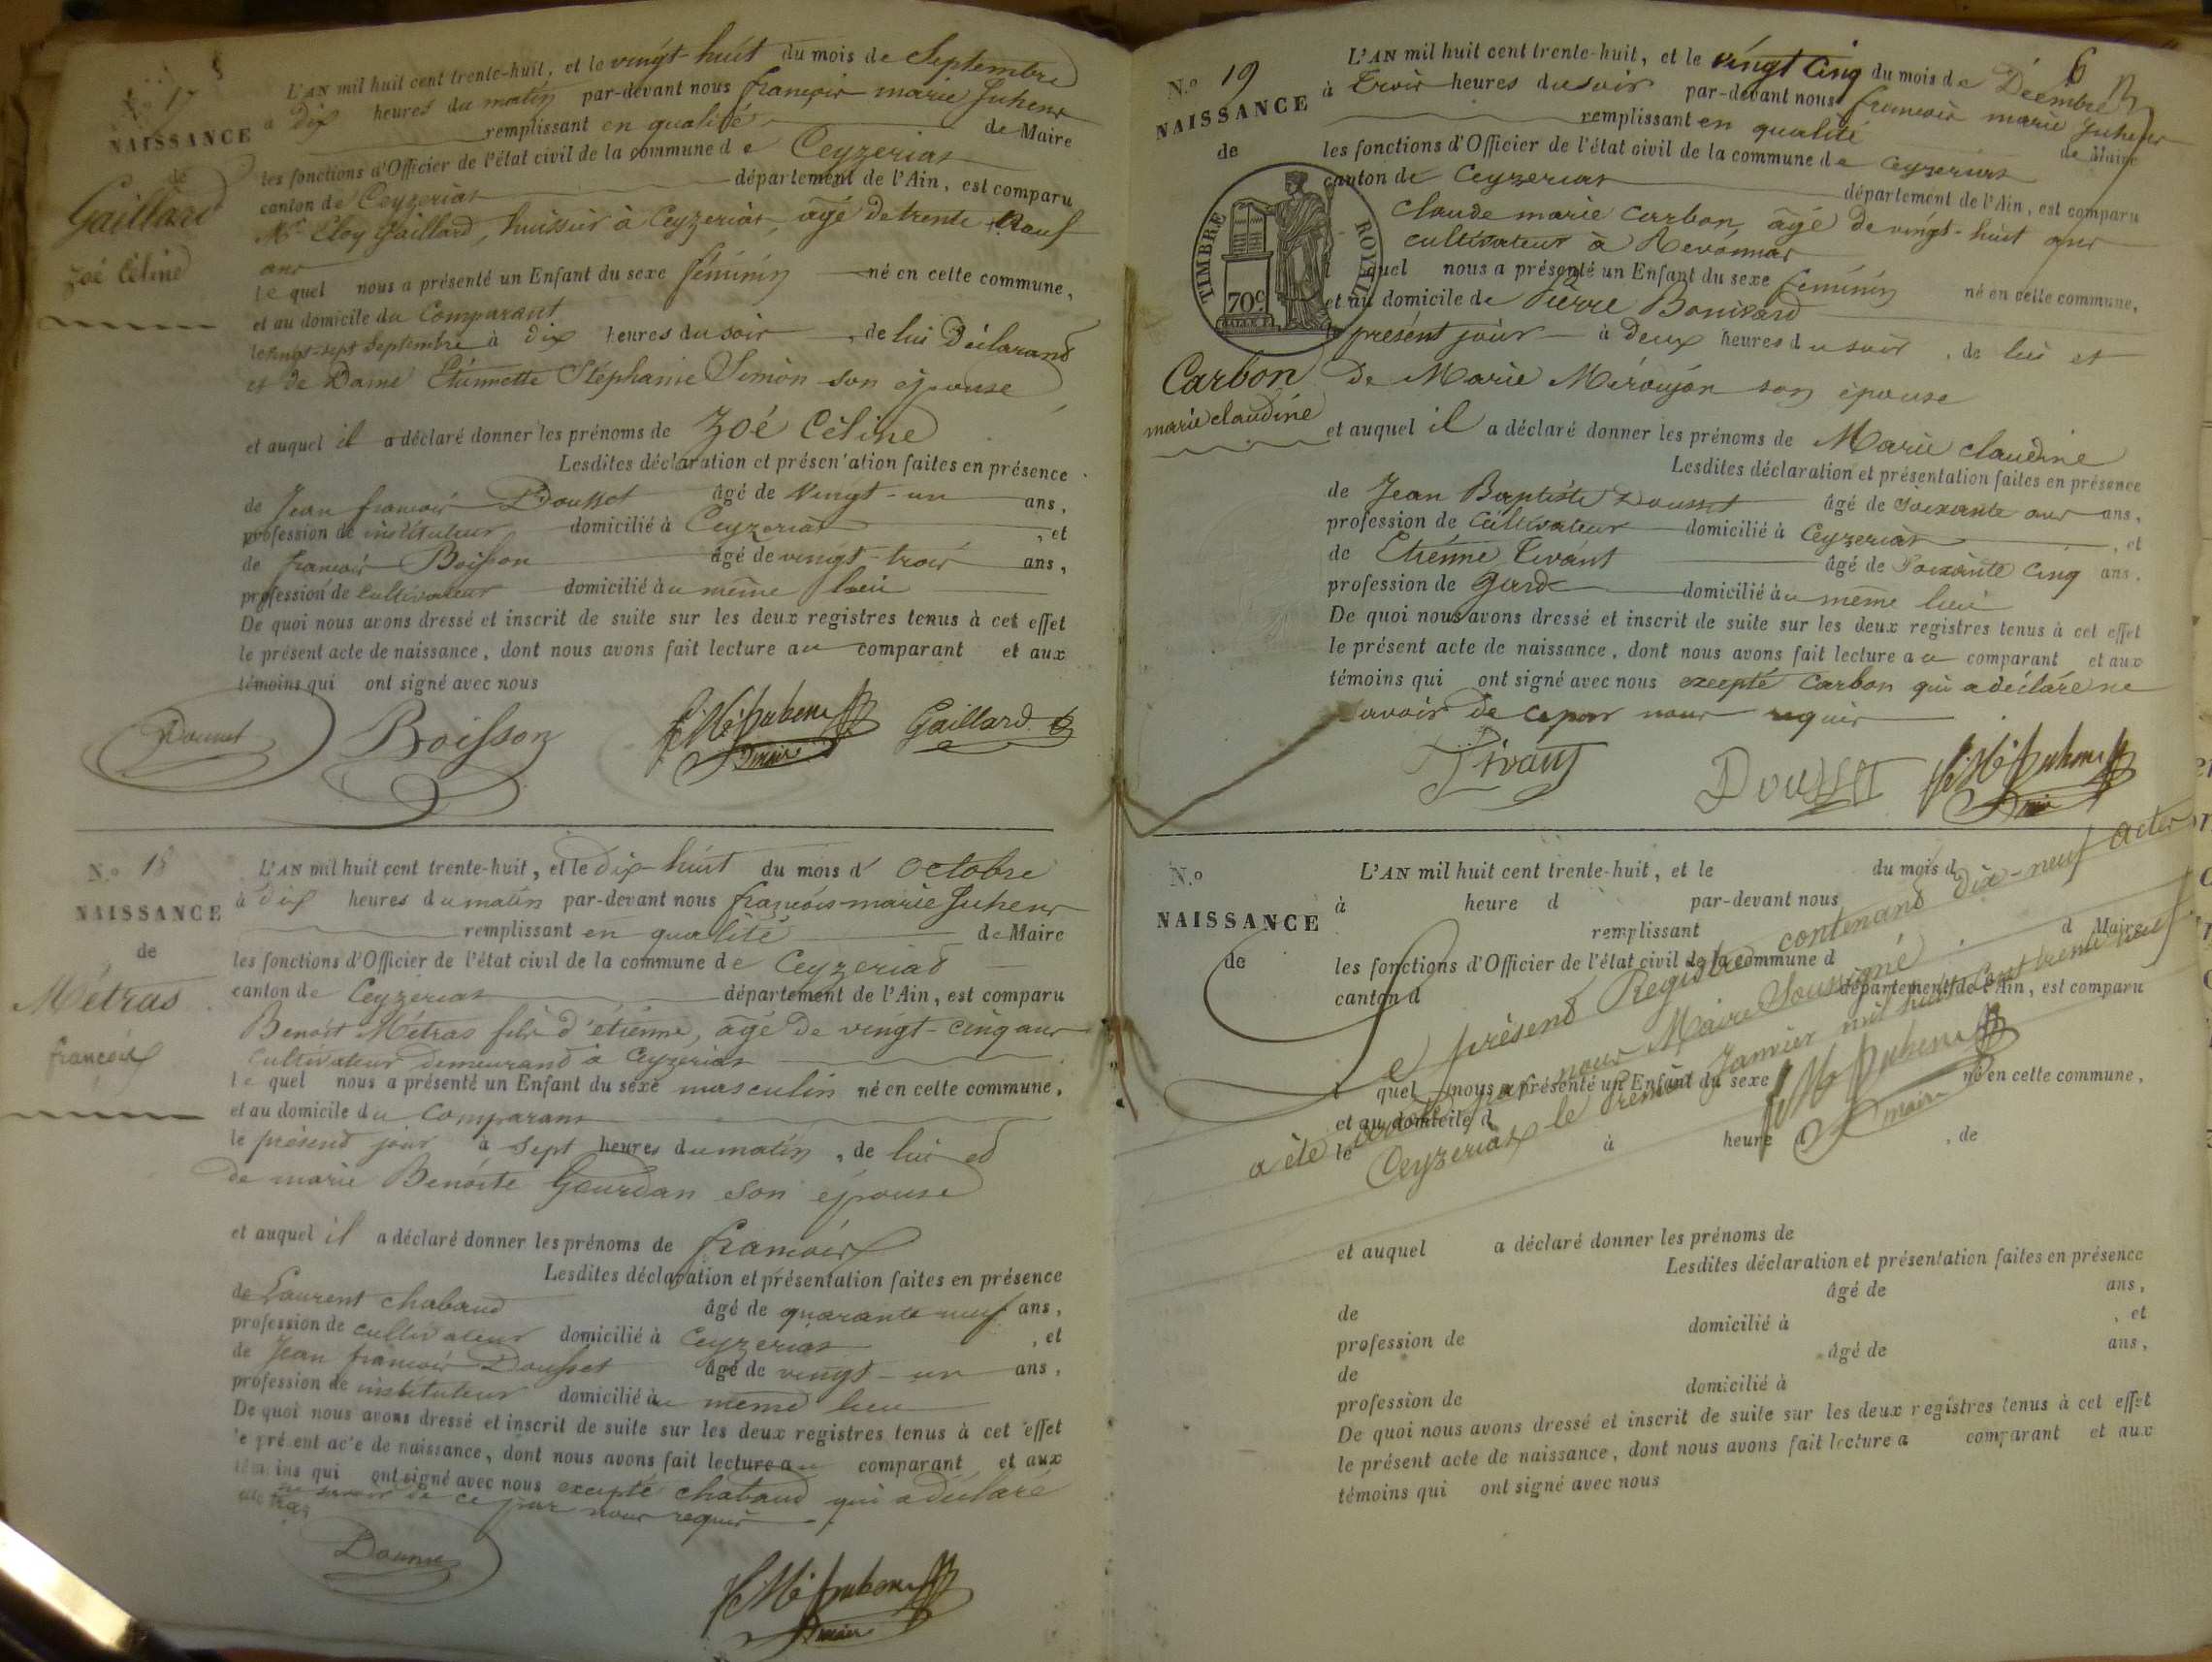 N.o 17
NAISSANCE
de
Gaillard
zoé Céline
L'AN mil huit cent trente-huit, et le vingt-huit du mois de Septembre
à dix heures du matin par-devant nous françois marie
remplissant en qualité de Maire
les fonctions d'Officier de l'état civil de la commune de Ceyzeriat
canton de Ceyzeriat département de l'Ain, est comparu
Mr Eloy Gaillard, huissier à Ceyzeriat, âgé de trente neuf
ans
le quel nous a présenté un Enfant du sexe féminin né en cette commune,
et au domicile du Comparant
le vingt-sept Septembre à dix heures du soir, de lui Déclarand
et de Dame Etiennette Stéphanie Simon son épouse
et auquel il a déclaré donner les prénoms de Zoé Céline
Lesdites déclaration et présentation faites en présence
de Jean françois Dousset âgé de vingt-un ans,
profession de instituteur domicilié à Ceyzeriat, et
de françois Boisson âgé de vingt-trois ans,
profession de cultivateur domicilié au même lieu
De quoi nous avons dressé et inscrit de suite sur les deux registres tenus à cet effet
le présent acte de naissance, dont nous avons fait lecture au comparant et aux
témoins qui ont signé avec nous
Dousset Boisson maire Gaillard
N.o 18
NAISSANCE
de
Métras
françois
L'AN mil huit cent trente-huit, et le dix-huit du mois d' octobre
à dix heures du matin par-devant nous françois-marie
remplissant en qualité de Maire
les fonctions d'Officier de l'état civil de la commune de Ceyzeriat
canton de Ceyzeriat département de l'Ain, est comparu
Benoit Métras fils d'étienne, âgé de vingt-cinq ans
cultivateur demeurand à Ceyzeriat
le quel nous a présenté un Enfant du sexe masculin né en cette commune,
et au domicile du Comparant
le présend jour à sept heures du matin, de lui ed
de marie Benoite Gourdan son épouse
et auquel il a déclaré donner les prénoms de françois
Lesdites déclaration et présentation faites en présence
de Laurent chabaud âgé de quarante neuf ans,
profession de cultivateur domicilié à Ceyzeriat, et
de Jean françois Dousset âgé de vingt-un ans,
profession de instituteur domicilié au meme lieu
De quoi nous avons dressé et inscrit de suite sur les deux registres tenus à cet effet
le présent acte de naissance, dont nous avons fait lecture au comparant et aux
témoins qui ont signé avec nous excepté chabaud qui a déclaré
ne savoir de ce par nous requis
Dousset
maire
6
N.o 19
NAISSANCE
de
TIMBRE ROYAL
70c
Carbon
marie claudine
L'AN mil huit cent trente-huit, et le vingt Cinq du mois de Décembre
à trois heures du soir par-devant nous françois marie
remplissant en qualité de Maire
les fonctions d'Officier de l'état civil de la commune de Ceyzeriat
canton de Ceyzeriat département de l'Ain, est comparu
claude marie Carbon, âgé de vingt-huit ans
cultivateur à Revonnas
quel nous a présenté un Enfant du sexe féminin né en cette commune,
et au domicile de Pierre Bonivard
le présent jour à deux heures du soir, de lui et
de Marie son épouse
et auquel il a déclaré donner les prénoms de Marie claudine
Lesdites déclaration et présentation faites en présence
de Jean Baptiste Dousset âgé de Soixante ans ans,
profession de Cultivateur domicilié à Ceyzeriat, et
de Etienne Tivant âgé de Soixante Cinq ans,
profession de garde domicilié au même lieu
De quoi nous avons dressé et inscrit de suite sur les deux registres tenus à cet effet
le présent acte de naissance, dont nous avons fait lecture au comparant et aux
témoins qui ont signé avec nous excepté Carbon qui a déclaré ne
savoir de ce par nous requis
Tivant Dousset maire
N.o
NAISSANCE
de
L'AN mil huit cent trente-huit, et le du mois d
à heure d par-devant nous
remplissant d Maire
les fonctions d'Officier de l'état civil de la commune d
canton d département de l'Ain, est comparu
Le présend Registre contenand dix-neuf actes
a été par nous Maire Soussigné
Ceyzeriat le Premier Janvier mil huit Cent trente neuf
maire
l quel nous a présenté un Enfant du sexe né en cette commune,
et au domicile d
le à heure d, de
et auquel a déclaré donner les prénoms de
Lesdites déclaration et présentation faites en présence
de âgé de ans,
profession de domicilié à, et
de âgé de ans,
profession de domicilié à
De quoi nous avons dressé et inscrit de suite sur les deux registres tenus à cet effet
le présent acte de naissance, dont nous avons fait lecture a comparant et aux
témoins qui ont signé avec nous